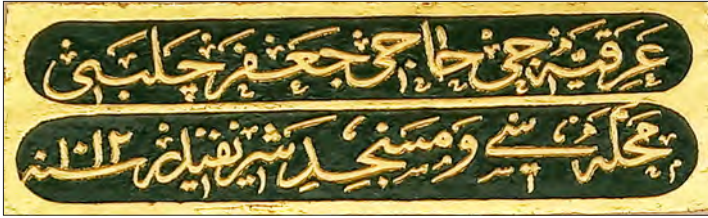 عَرَقِيَّه جِي حَاجِي جَعْفَر چَلَبِي
مَحَلَّه سِي وَمَسْجِدِ شَرِيفِيدِر سنه ١٠١٢